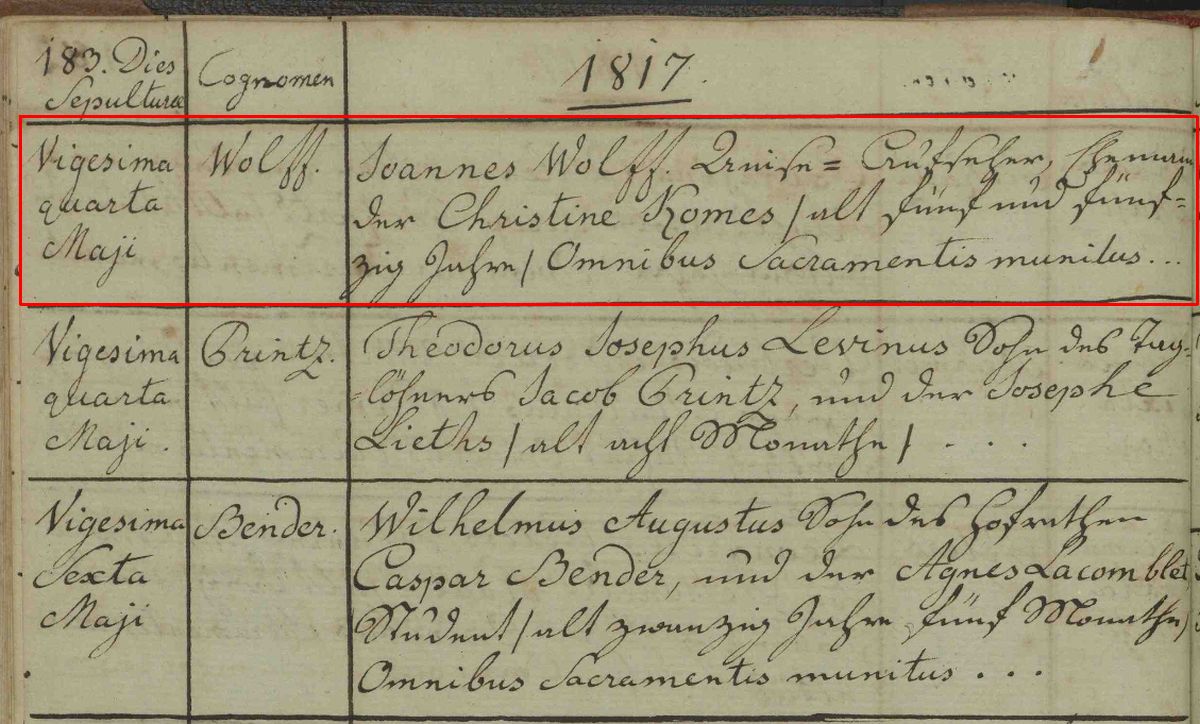 183. Dies Sepulturæ
Cognomen
1817.
Vigesima
quarta
Maji
Wolff.
Joannes Wolff. Aufseher, Ehemann
der Christine Komes / alt fünf und fünf=
zig Jahre / Omnibus Sacramentis munitus...
Vigesima
quarta
Maji.
Printz.
Theodorus Josephus Levinus Sohn des Tag=
=löhners Jacob Printz, und der Josephe
Lieths / alt acht Monathe / . . . .
Vigesima
Sexta
Maji
Bender.
Wilhelmus Augustus Sohn des Hofrathen
Caspar Bender, und der Agnes Lacomblet
Student / alt zwanzig Jahre fünf Monathe /
Omnibus Sacramentis munitus . . .